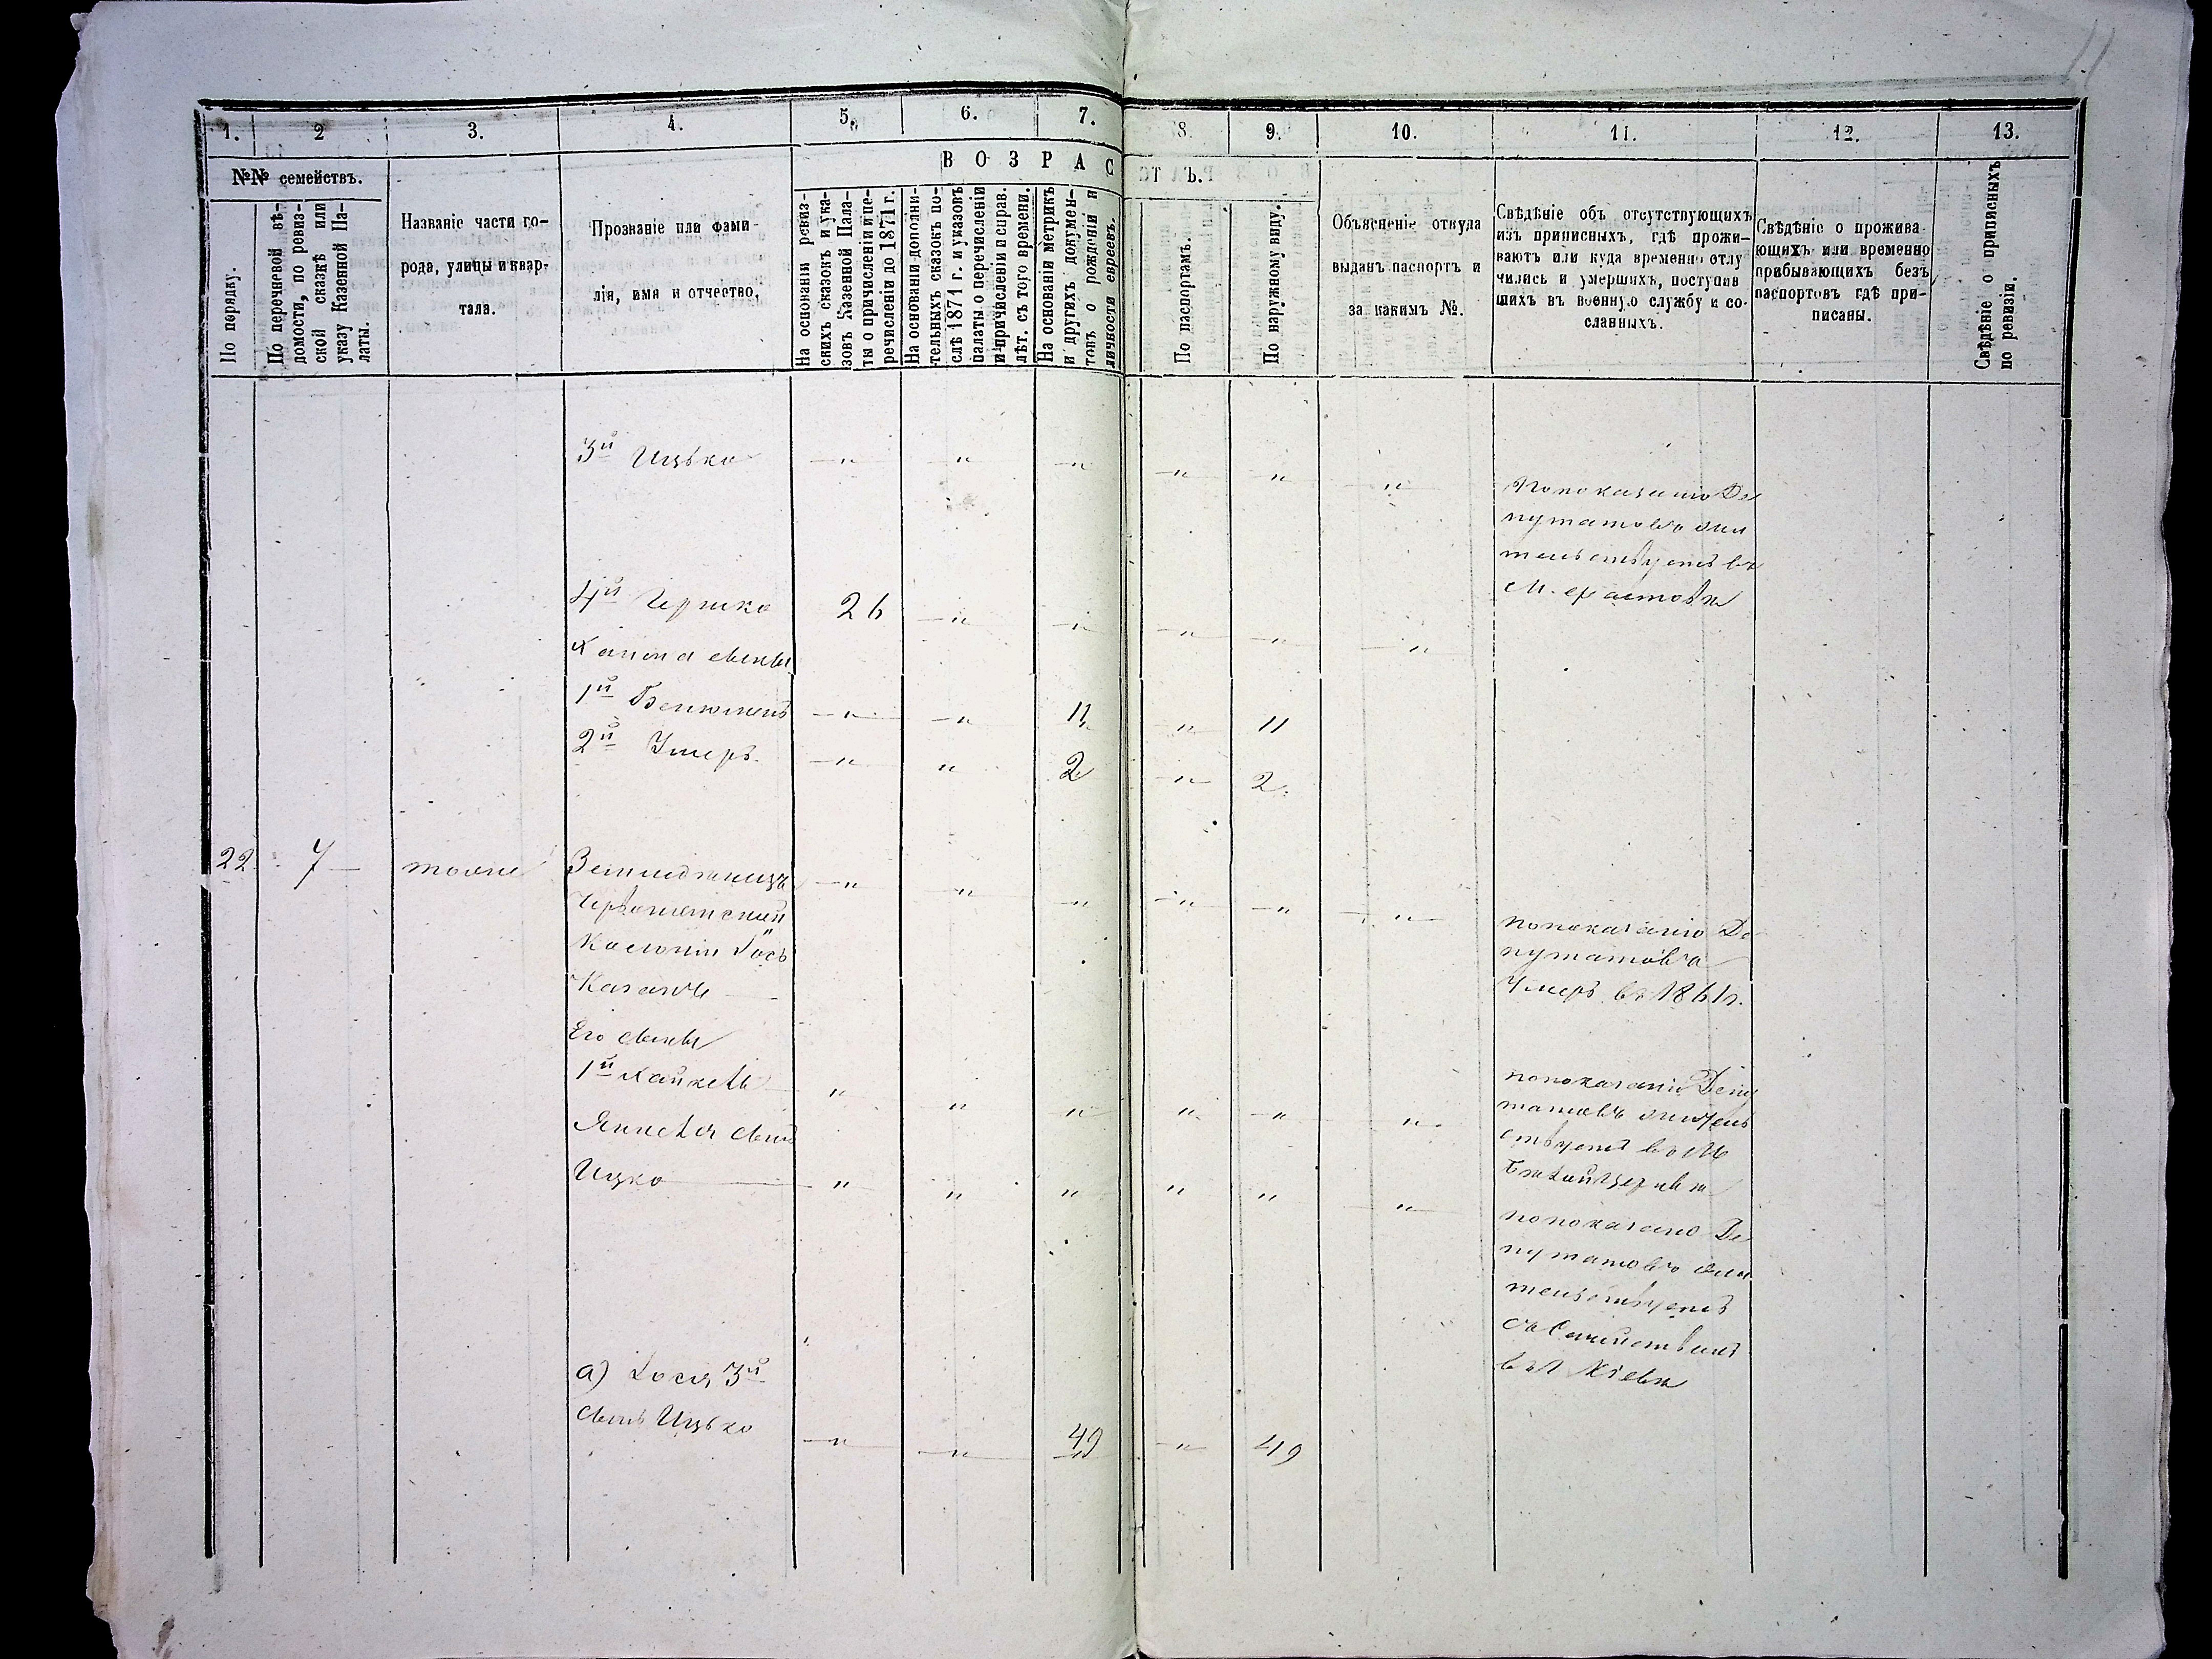 11
1. 2 3. 4. 5. 6. 7. 8. 9. 10. 11. 12. 13.
В О З Р А С Т Ъ.
№№ семействъ.
По порядку.
По перечневой вѣ-
домости, по ревиз-
ской сказкѣ или
указу Казенной Па-
латы.
Названіе части го-
рода, улицы и квар-
тала.
Прозваніе или фами-
лія, имя и отчество.
На основаніи ревиз-
скихъ сказокъ и ука-
зовъ Казенной Пала-
ты о причисленіи и пе-
речисленіи до 1871 г.
На основаніи дополни-
тельныхъ сказокъ по-
слѣ 1871 г. и указовъ
палаты о перечисленіи
и причисленіи и справ.
лѣт. съ того времени.
На основаніи метрикъ
и другихъ докумен-
товъ о рожденіи и
личности евреевъ.
По паспортамъ.
По наружному виду.
Объясненіе откуда
выданъ паспортъ и
за какимъ №.
Свѣдѣніе объ отсутствующихъ
изъ приписныхъ, гдѣ прожи-
ваютъ или куда временно отлу
чились и умершихъ, поступив
шихъ въ военную службу и со-
сланныхъ.
Свѣдѣніе о прожива-
ющихъ или временно
прибывающихъ безъ
паспортовъ гдѣ при-
писаны.
Свѣдѣніе о приписныхъ
по ревизіи.
3й Ицько — " — " — " — " " — "
По показанію Де
путатовъ жи
тельствуетъ въ
М. Фастовѣ
4й Гершко 26 — " — " — " — " — "
сыновья
1й Бенюменъ — " — " 11 " 11
2й — " " 2 — " 2
22. 7 — тоже
— " — " — " — " — " — "
Колоніи
по показанію Де
путатовъ
Умеръ въ 1861 г.
Его сыновья
1й Хайкель " " " " — " "
показанію Депу
татовъ жител
ствуетъ въ М
Бѣлой Церквѣ
сынъ
Ицко — " " " " " — "
по показанію Де
путатовъ жи
тельствуетъ
съ Семействомъ
въ Г Кіевѣ
а) Лося 3й
сынъ Ицько — " — " 49 — " 49